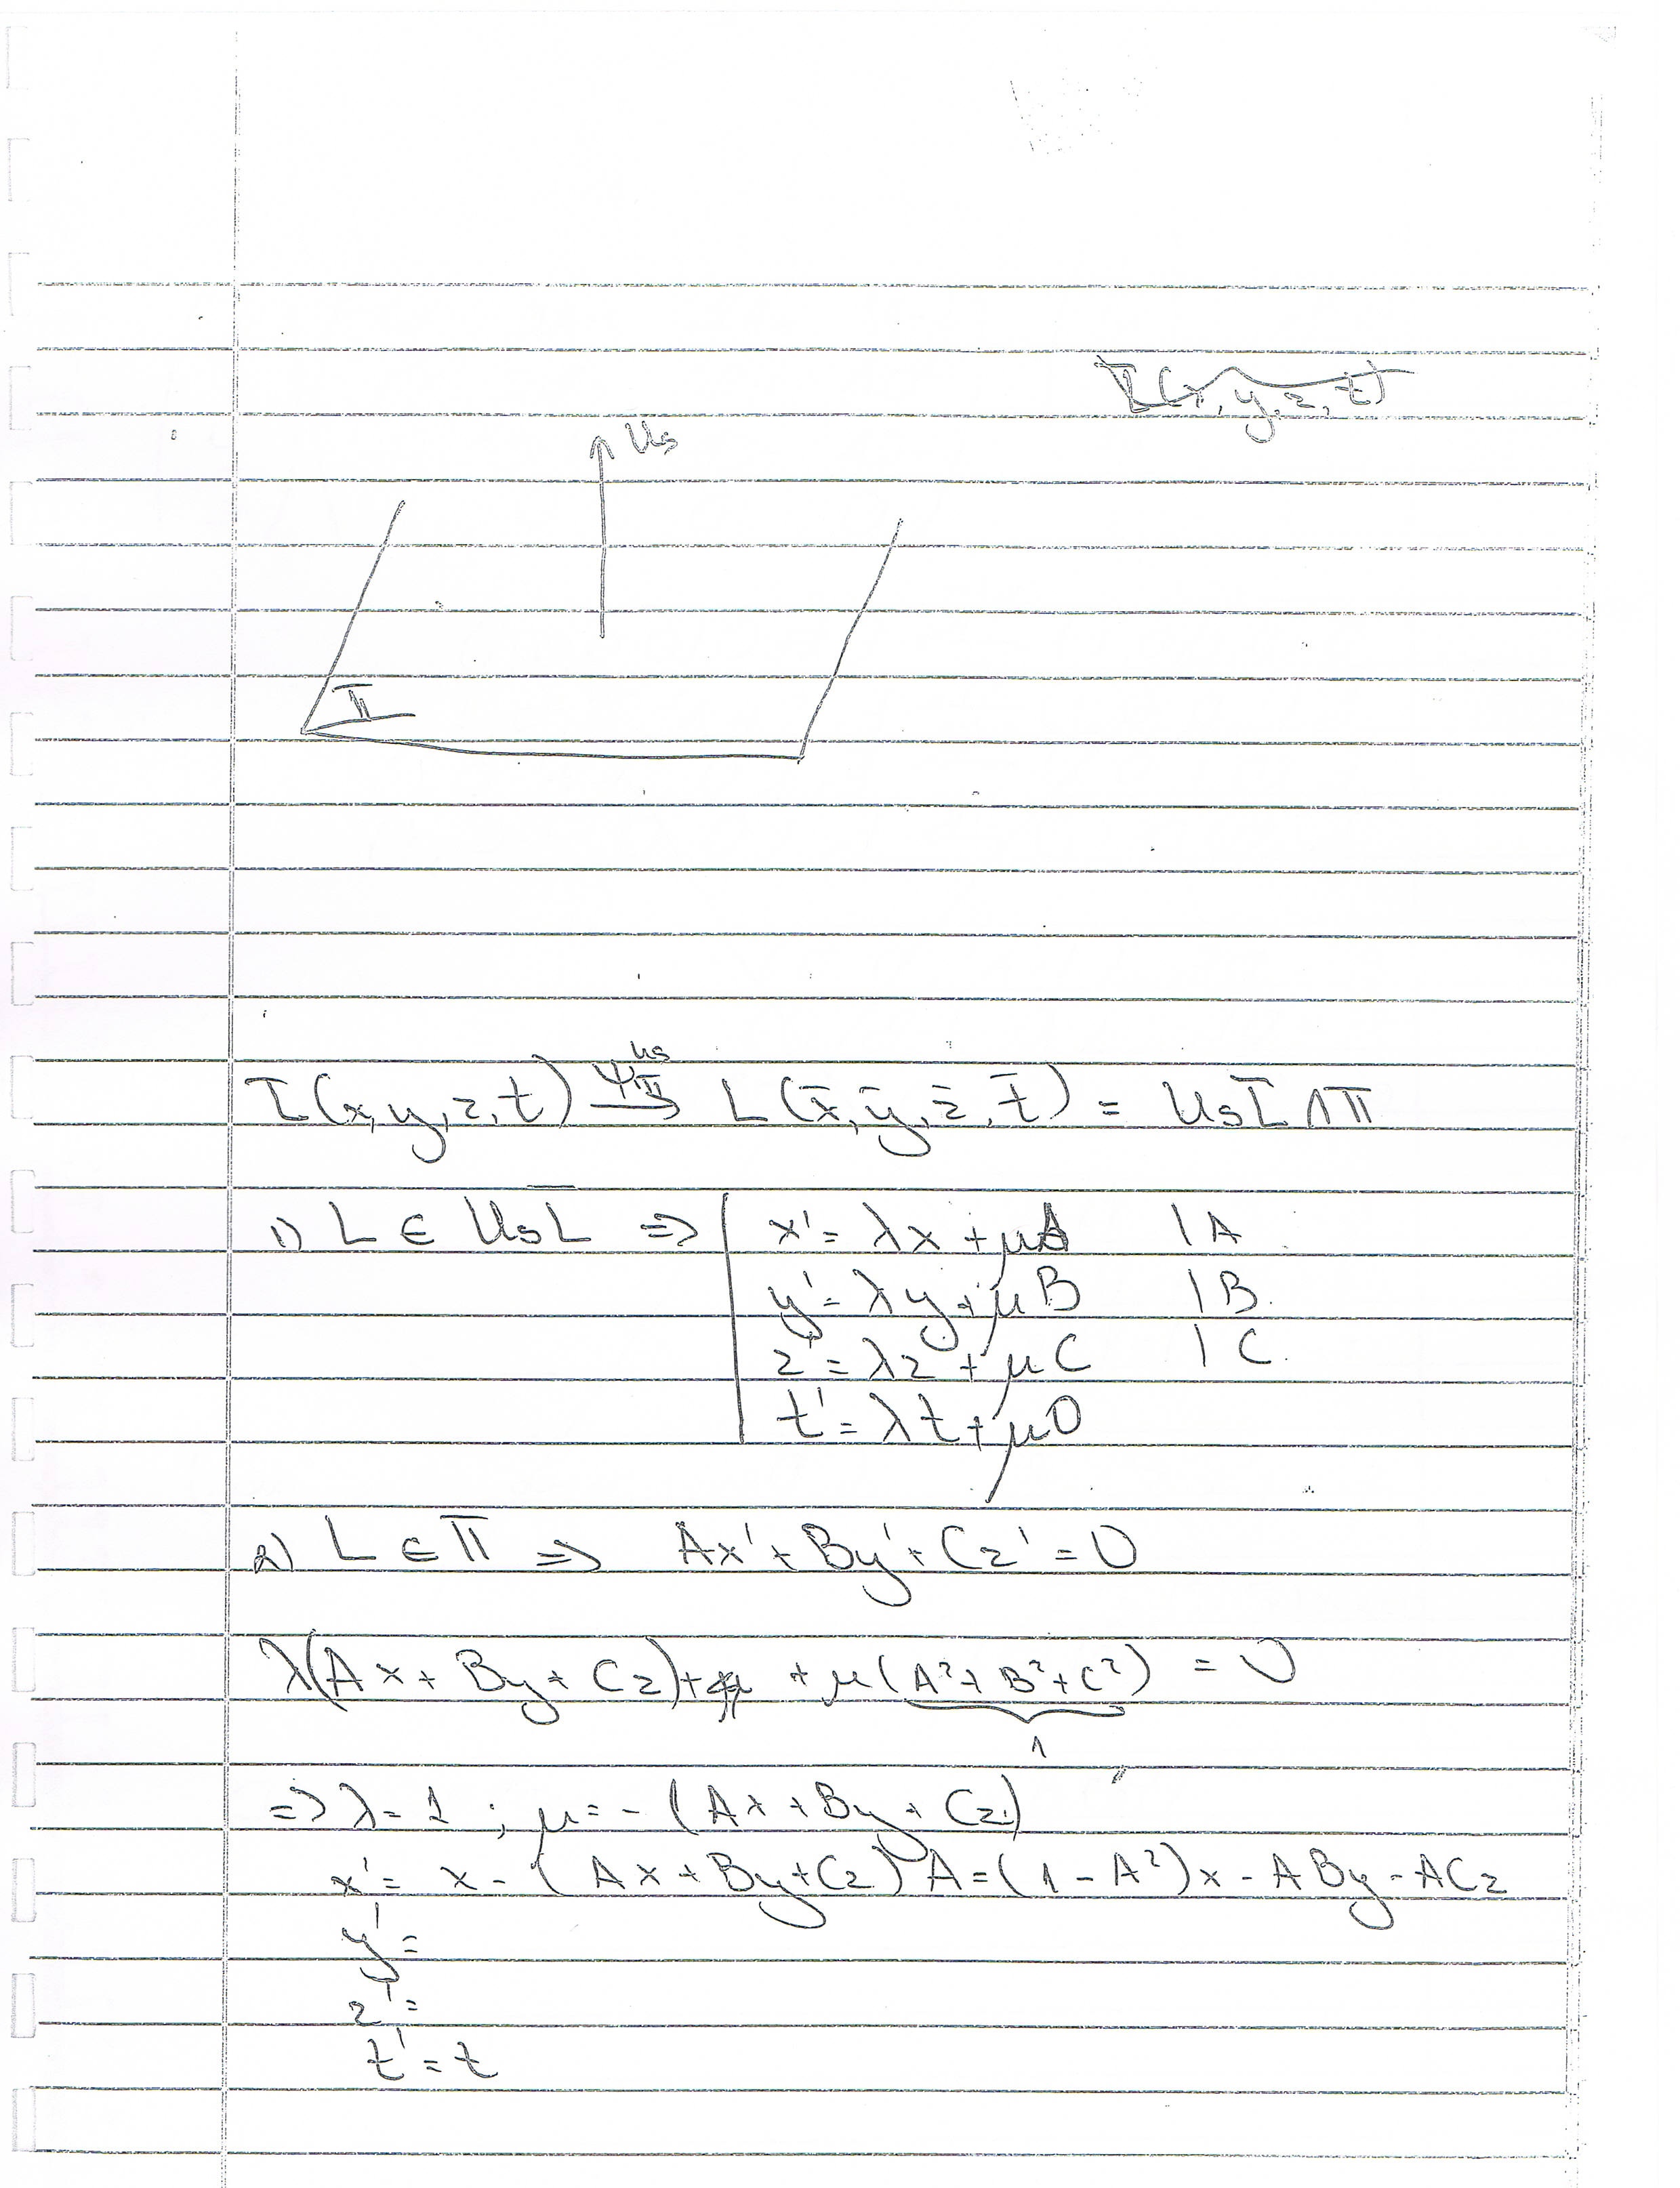 L̄(x, y, z, t)
Us
π
L̄(x, y, z, t) ψπ^Us → L(x̄, ȳ, z̄, t̄) = UsL̄ ∩ π
1) L ∈ UsL̄ ⇒ | x' = λx + μA | A
y' = λy + μB | B
z' = λz + μC | C
t' = λt + μ0
2) L ∈ π ⇒ Ax' + By' + Cz' = 0
λ(Ax + By + Cz) + μ(A² + B² + C²) = 0
1
⇒ λ = 1 ; μ = - (Ax + By + Cz)
x' = x - (Ax + By + Cz)A = (1 - A²)x - ABy - ACz
y' =
z' =
t' = t